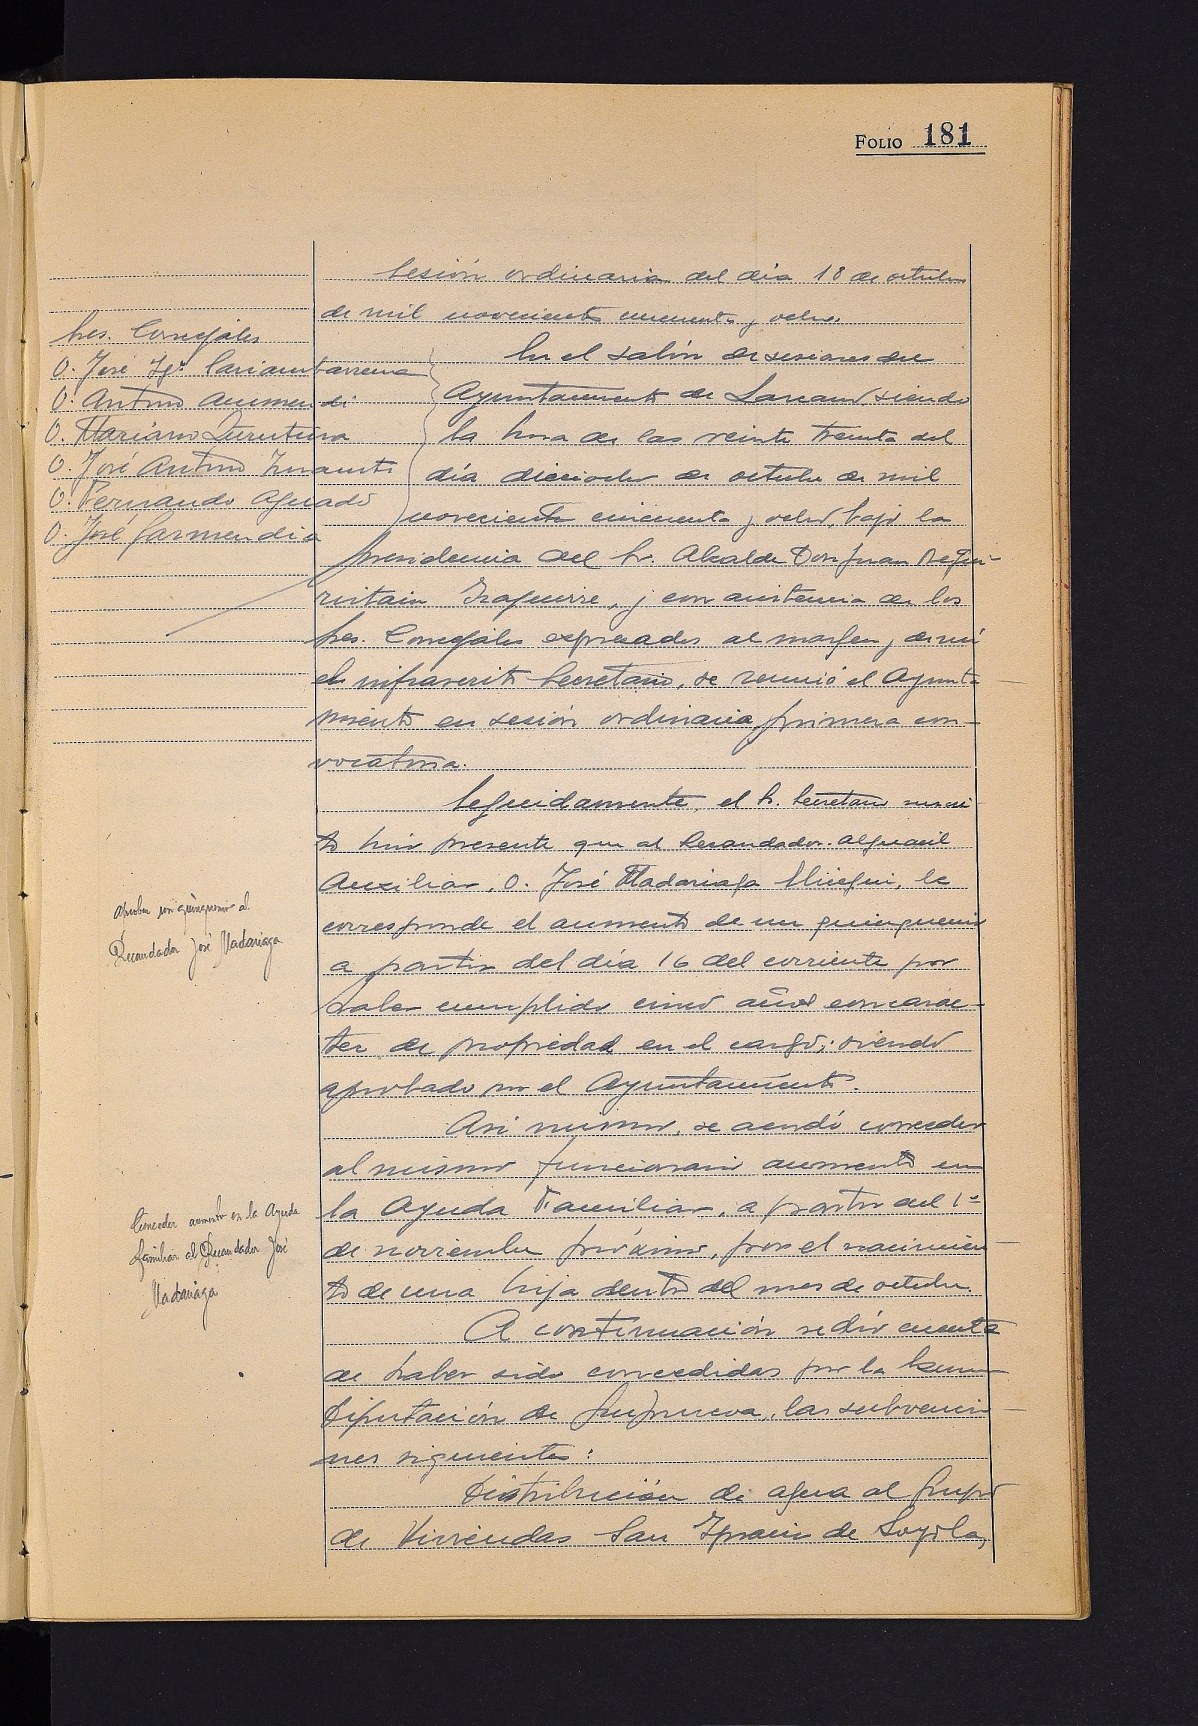 FOLIO 181
Sesión ordinaria del día 18 de octubre
de mil novecientos cincuenta y ocho.
Sres. Concejales
D. José Igº Lariambarrena
D. Antonio Aumendi
D. Mariano
D. José Antonio
D. Fernando Aguado
D. José Garmendia
En el salón de sesiones del
Ayuntamiento de Lazcano, siendo
la hora de las veinte treinta del
día dieciocho de octubre de mil
novecientos cincuenta y ocho, bajo la
presidencia del Sr. Alcalde Don Juan Regui-
ristain Izaguirre, y con asistencia de los
Sres. Concejales expresados al margen, de mí
el infrascrito Secretario, se reunió el Ayunta-
miento en sesión ordinaria, primera con-
vocatoria.
Seguidamente, el Sr. Secretario
to hizo presente que al Recaudador-alguacil
Auxiliar, D. José Madariaga, le
corresponde el aumento de un quinquenio
a partir del día 16 del corriente por
haber cumplido cinco años con carác-
ter de propiedad en el cargo; siendo
aprobado por el Ayuntamiento.
Aprobar un quinquenio al
Recaudador José Madariaga
Así mismo, se acordó conceder
al mismo funcionario aumento en
la Ayuda Familiar, a partir del 1º
de noviembre próximo, por el nacimien-
to de una hija dentro del mes de octubre.
Conceder aumento en la Ayuda
familiar al Recaudador José
Madariaga
A continuación se dió cuenta
de haber sido concedidas por la Excma
Diputación de Guipuzcoa, las subvencio-
nes siguientes:
Distribución de agua al Grupo
de Viviendas San Ignacio de Loyola,